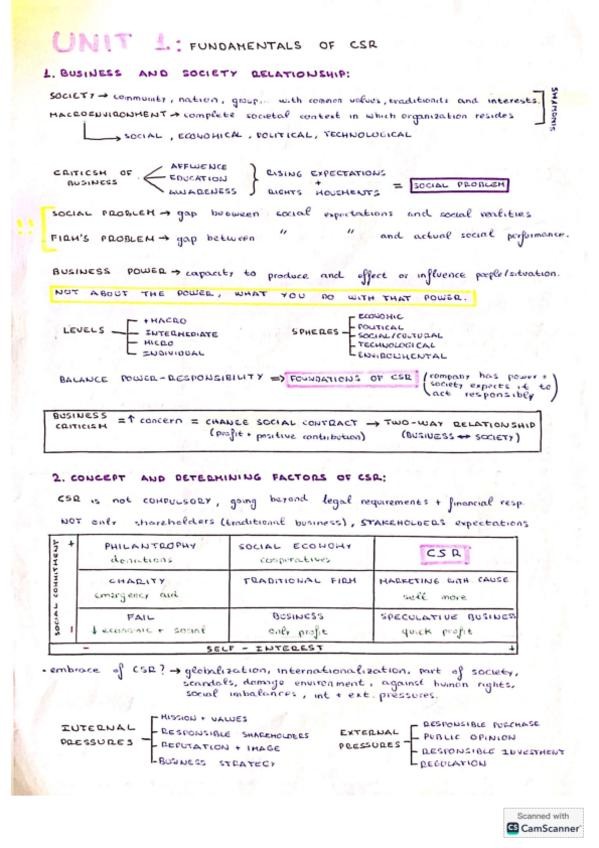 UNIT 1: FUNDAMENTALS OF CSR
1. BUSINESS AND SOCIETY RELATIONSHIP:
SOCIETY → community, nation, group... with common values, traditions and interests.
MACROENVIRONMENT → complete societal context in which organization resides
SOCIAL, ECONOMICAL, POLITICAL, TECHNOLOGICAL
CRITICSM OF BUSINESS
AFFLUENCE
EDUCATION
AWARENESS
RISING EXPECTATIONS
+
RIGHTS MOVEMENTS
= SOCIAL PROBLEM
!! SOCIAL PROBLEM → gap between social expectations and social realities
FIRM'S PROBLEM → gap between " " and actual social performance.
BUSINESS POWER → capacity to produce and effect or influence people/situation.
NOT ABOUT THE POWER, WHAT YOU DO WITH THAT POWER.
LEVELS
+MACRO
INTERMEDIATE
MICRO
INDIVIDUAL
SPHERES
ECONOMIC
POLITICAL
SOCIAL/CULTURAL
TECHNOLOGICAL
ENVIRONMENTAL
BALANCE POWER-RESPONSIBILITY => FOUNDATIONS OF CSR
(company has power +
society expects it to
act responsibly)
BUSINESS CRITICISM = ↑ concern = CHANGE SOCIAL CONTRACT → TWO-WAY RELATIONSHIP
(profit + positive contribution) (BUSINESS ↔ SOCIETY)
2. CONCEPT AND DETERMINING FACTORS OF CSR:
CSR is not COMPULSORY, going beyond legal requirements + financial resp.
NOT only shareholders (traditional business), STAKEHOLDERS expectations
SOCIAL COMMITMENT
+
-
PHILANTROPHY
donations
SOCIAL ECONOMY
cooperatives
CSR
CHARITY
emergency aid
TRADITIONAL FIRM
MARKETING WITH CAUSE
sell more
FAIL
↓ economic + social
BUSINESS
only profit
SPECULATIVE BUSINESS
quick profit
- SELF-INTEREST +
· embrace of CSR? → globalization, internationalization, part of society,
scandals, damage environment, against human rights,
social imbalances, int + ext. pressures.
INTERNAL PRESSURES
MISSION + VALUES
RESPONSIBLE SHAREHOLDERS
REPUTATION + IMAGE
BUSINESS STRATEGY
EXTERNAL PRESSURES
RESPONSIBLE PURCHASE
PUBLIC OPINION
RESPONSIBLE INVESTMENT
REGULATION
Scanned with
CS CamScanner